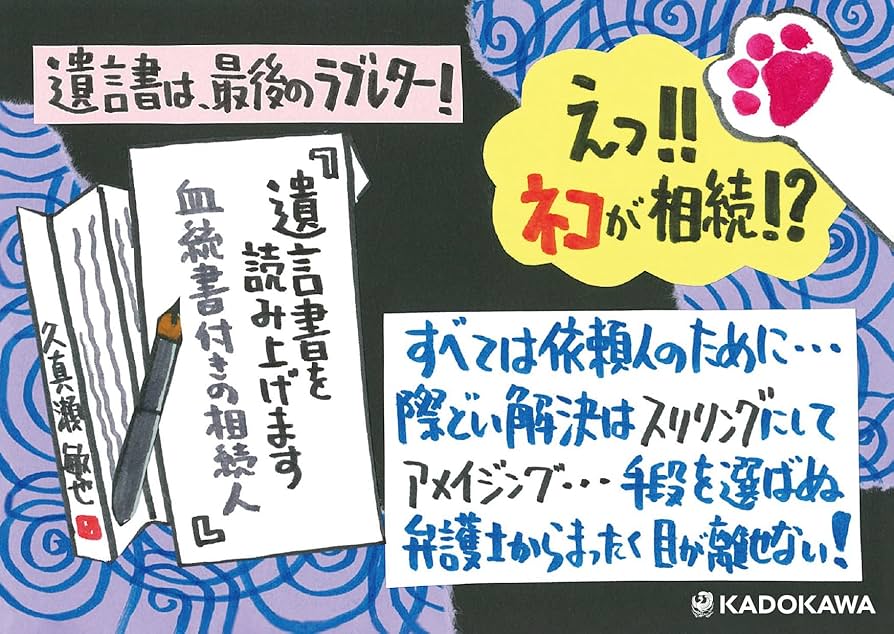 遺言書は、最後のラブレター！
えっ!!
ネコが相続!?
『遺言書を
読み上げます
血統書付きの相続人』
久真瀬敏也
すべては依頼人のために…
際どい解決はスリリングにして
アメイジング…手段を選ばぬ
弁護士からまったく目が離せない！
KADOKAWA